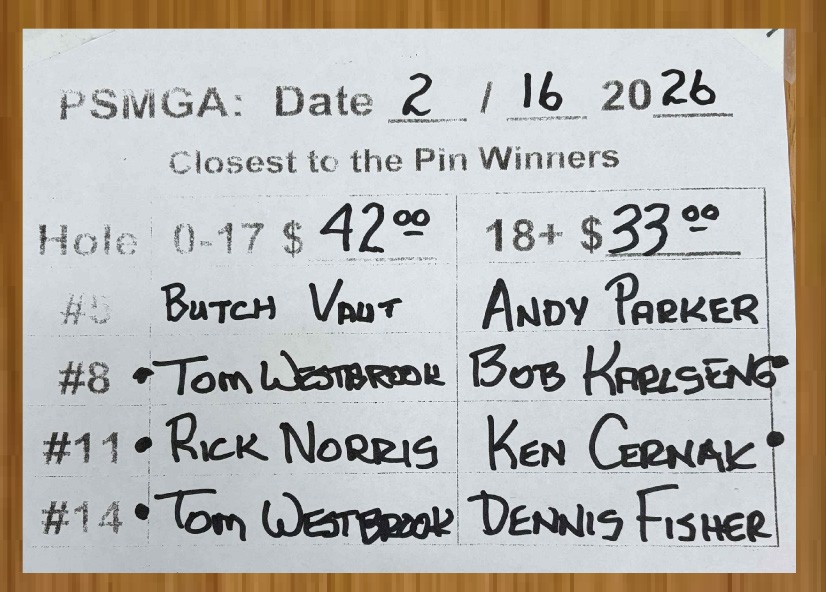 PSMGA: Date 2 / 16 2026
Closest to the Pin Winners
Hole 0-17 $ 42.00 18+ $ 33.00
#5 BUTCH VAUT ANDY PARKER
#8 • TOM WESTBROOK BOB KARLSENG •
#11 • RICK NORRIS KEN CERNAK •
#14 • TOM WESTBROOK DENNIS FISHER